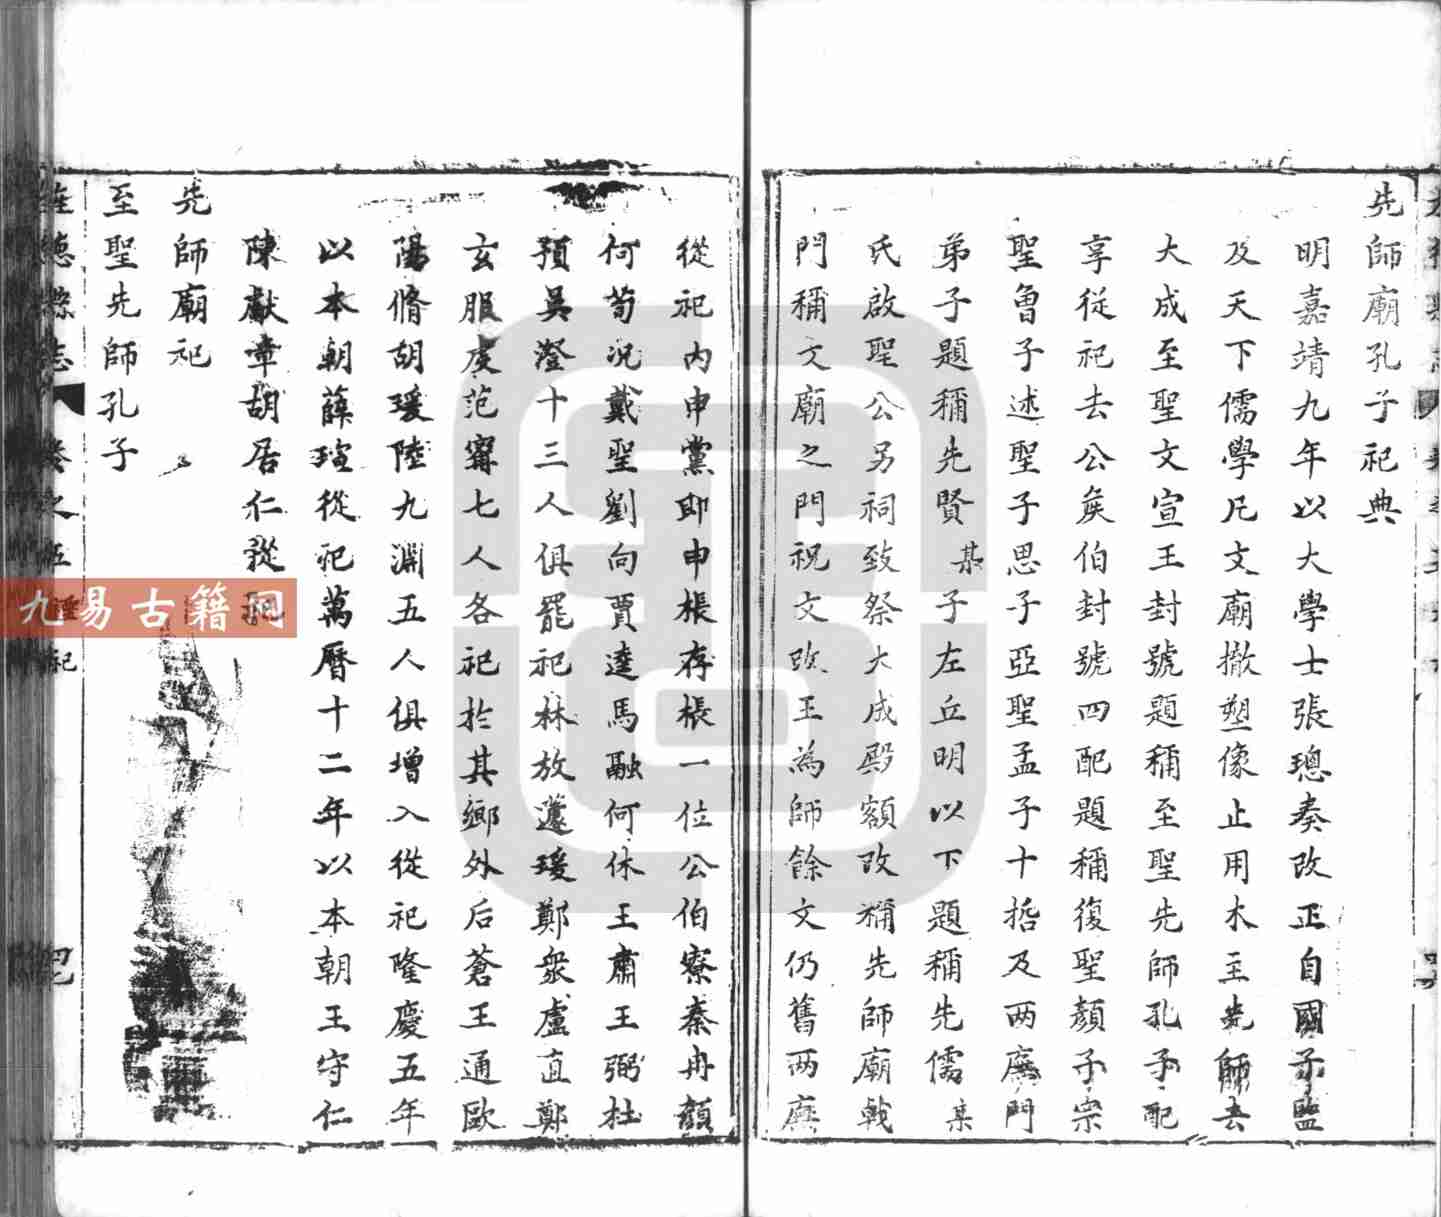 先師廟孔子祀典
明嘉靖九年以大學士張璁奏改正自國子監
及天下儒學凡文廟撤塑像止用木主先師去
大成至聖文宣王封號題稱至聖先師孔子配
享從祀去公矦伯封號四配題稱復聖顏子宗
聖曾子述聖子思子亞聖孟子十哲及两廡門
弟子題稱先賢某子左丘明以下題稱先儒某
氏啟聖公另祠致祭大成殿額改稱先師廟戟
門稱文廟之門祝文改王為師餘文仍舊两廡
從祀內申黨即申棖存棖一位公伯寮秦冉顏
何荀况戴聖劉向賈逵馬融何休王肅王弼杜
預吳澄十三人俱罷祀林放蘧瑗鄭衆盧直鄭
玄服虔范甯七人各祀於其鄉外后蒼王通歐
陽脩胡瑗陸九淵五人俱增入從祀隆慶五年
以本朝薛瑄從祀萬曆十二年以本朝王守仁
陳獻章胡居仁從祀
先師廟祀
至聖先師孔子
德縣志 卷之五 祀
九易古籍网